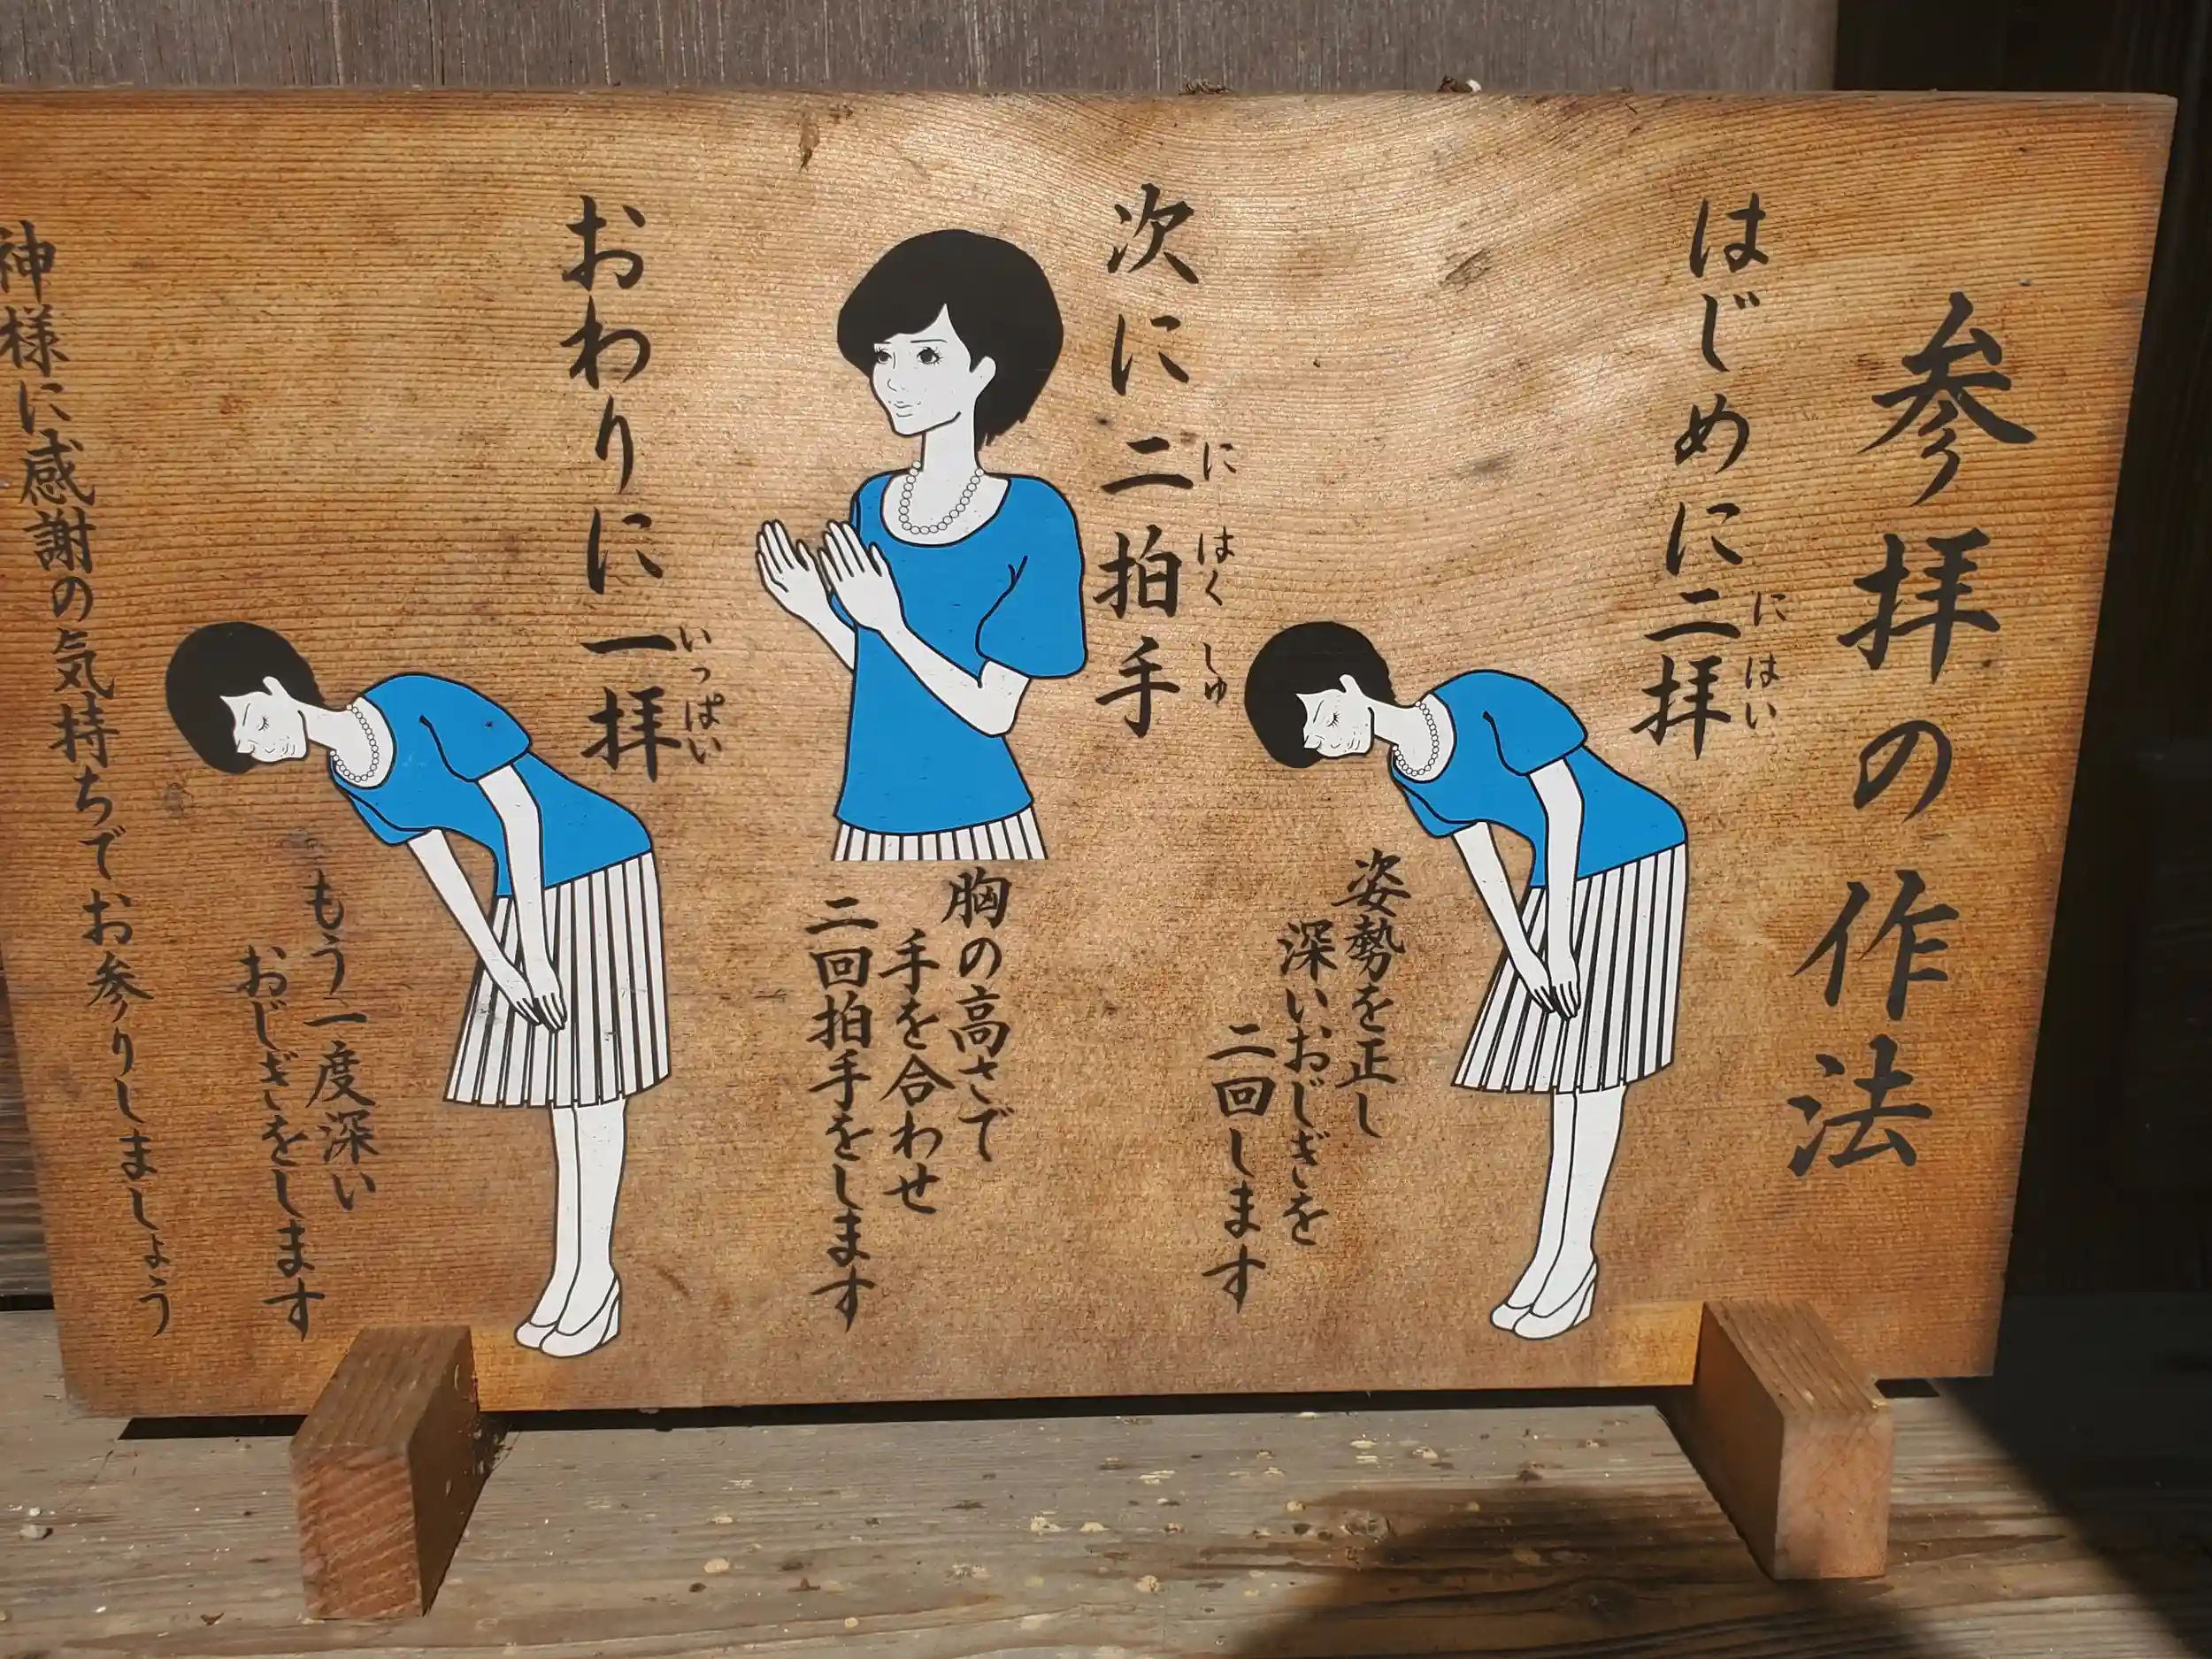 参拝の作法
はじめに二拝
にはい
姿勢を正し
深いおじぎを
二回します
次に二拍手
にはくしゅ
胸の高さで
手を合わせ
二回拍手をします
おわりに一拝
いっぱい
もう一度深い
おじぎをします
神様に感謝の気持ちでお参りしましょう